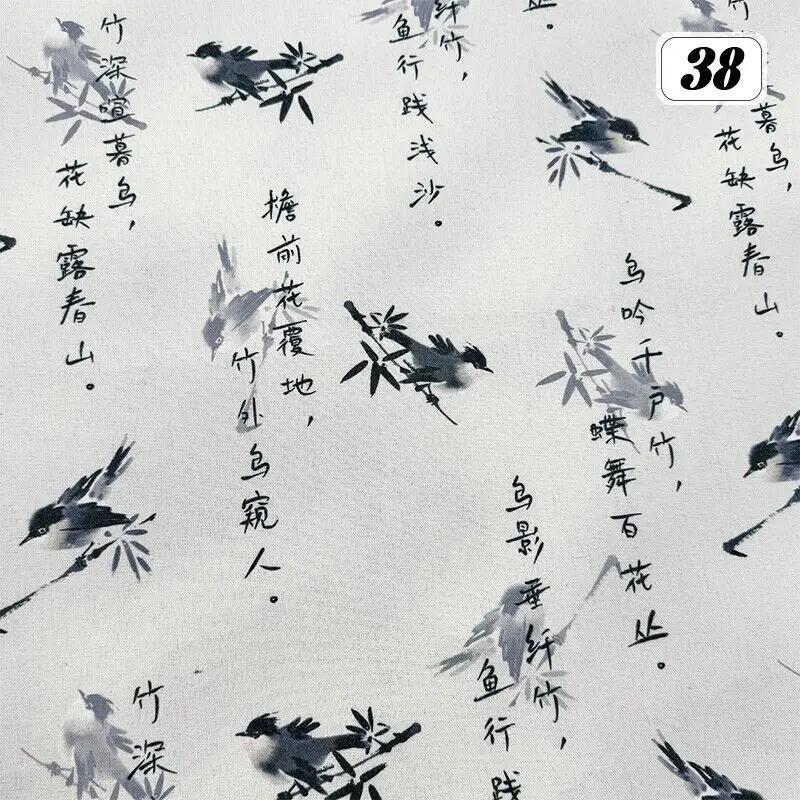 竹深喧暮鸟，
花缺露春山。
纤竹，
鱼行践浅沙。
丛。
38
竹
暮鸟，
花缺露春山。
檐前花覆地，
竹外鸟窥人。
鸟吟千户竹，
蝶舞百花丛。
鸟影垂纤竹，
鱼行践
竹深